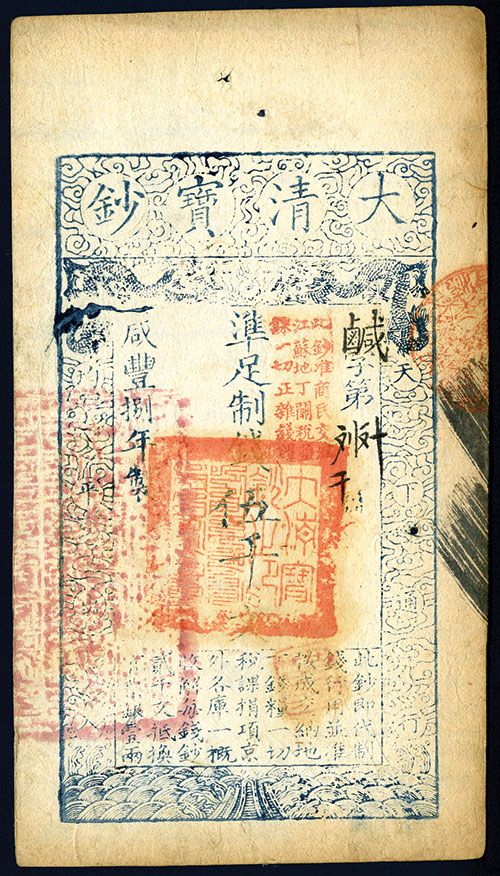 大清寶鈔
天下通行
鹹字第
此鈔准商民交
江蘇地丁關稅
課一切正雜錢
準足制錢伍千文
咸豐捌年製
平
入
此鈔即代制
錢行用並準
按成交納地
丁錢糧一切
稅課捐項京
外各庫一概
收解每錢鈔
貳千文抵換
銀壹兩